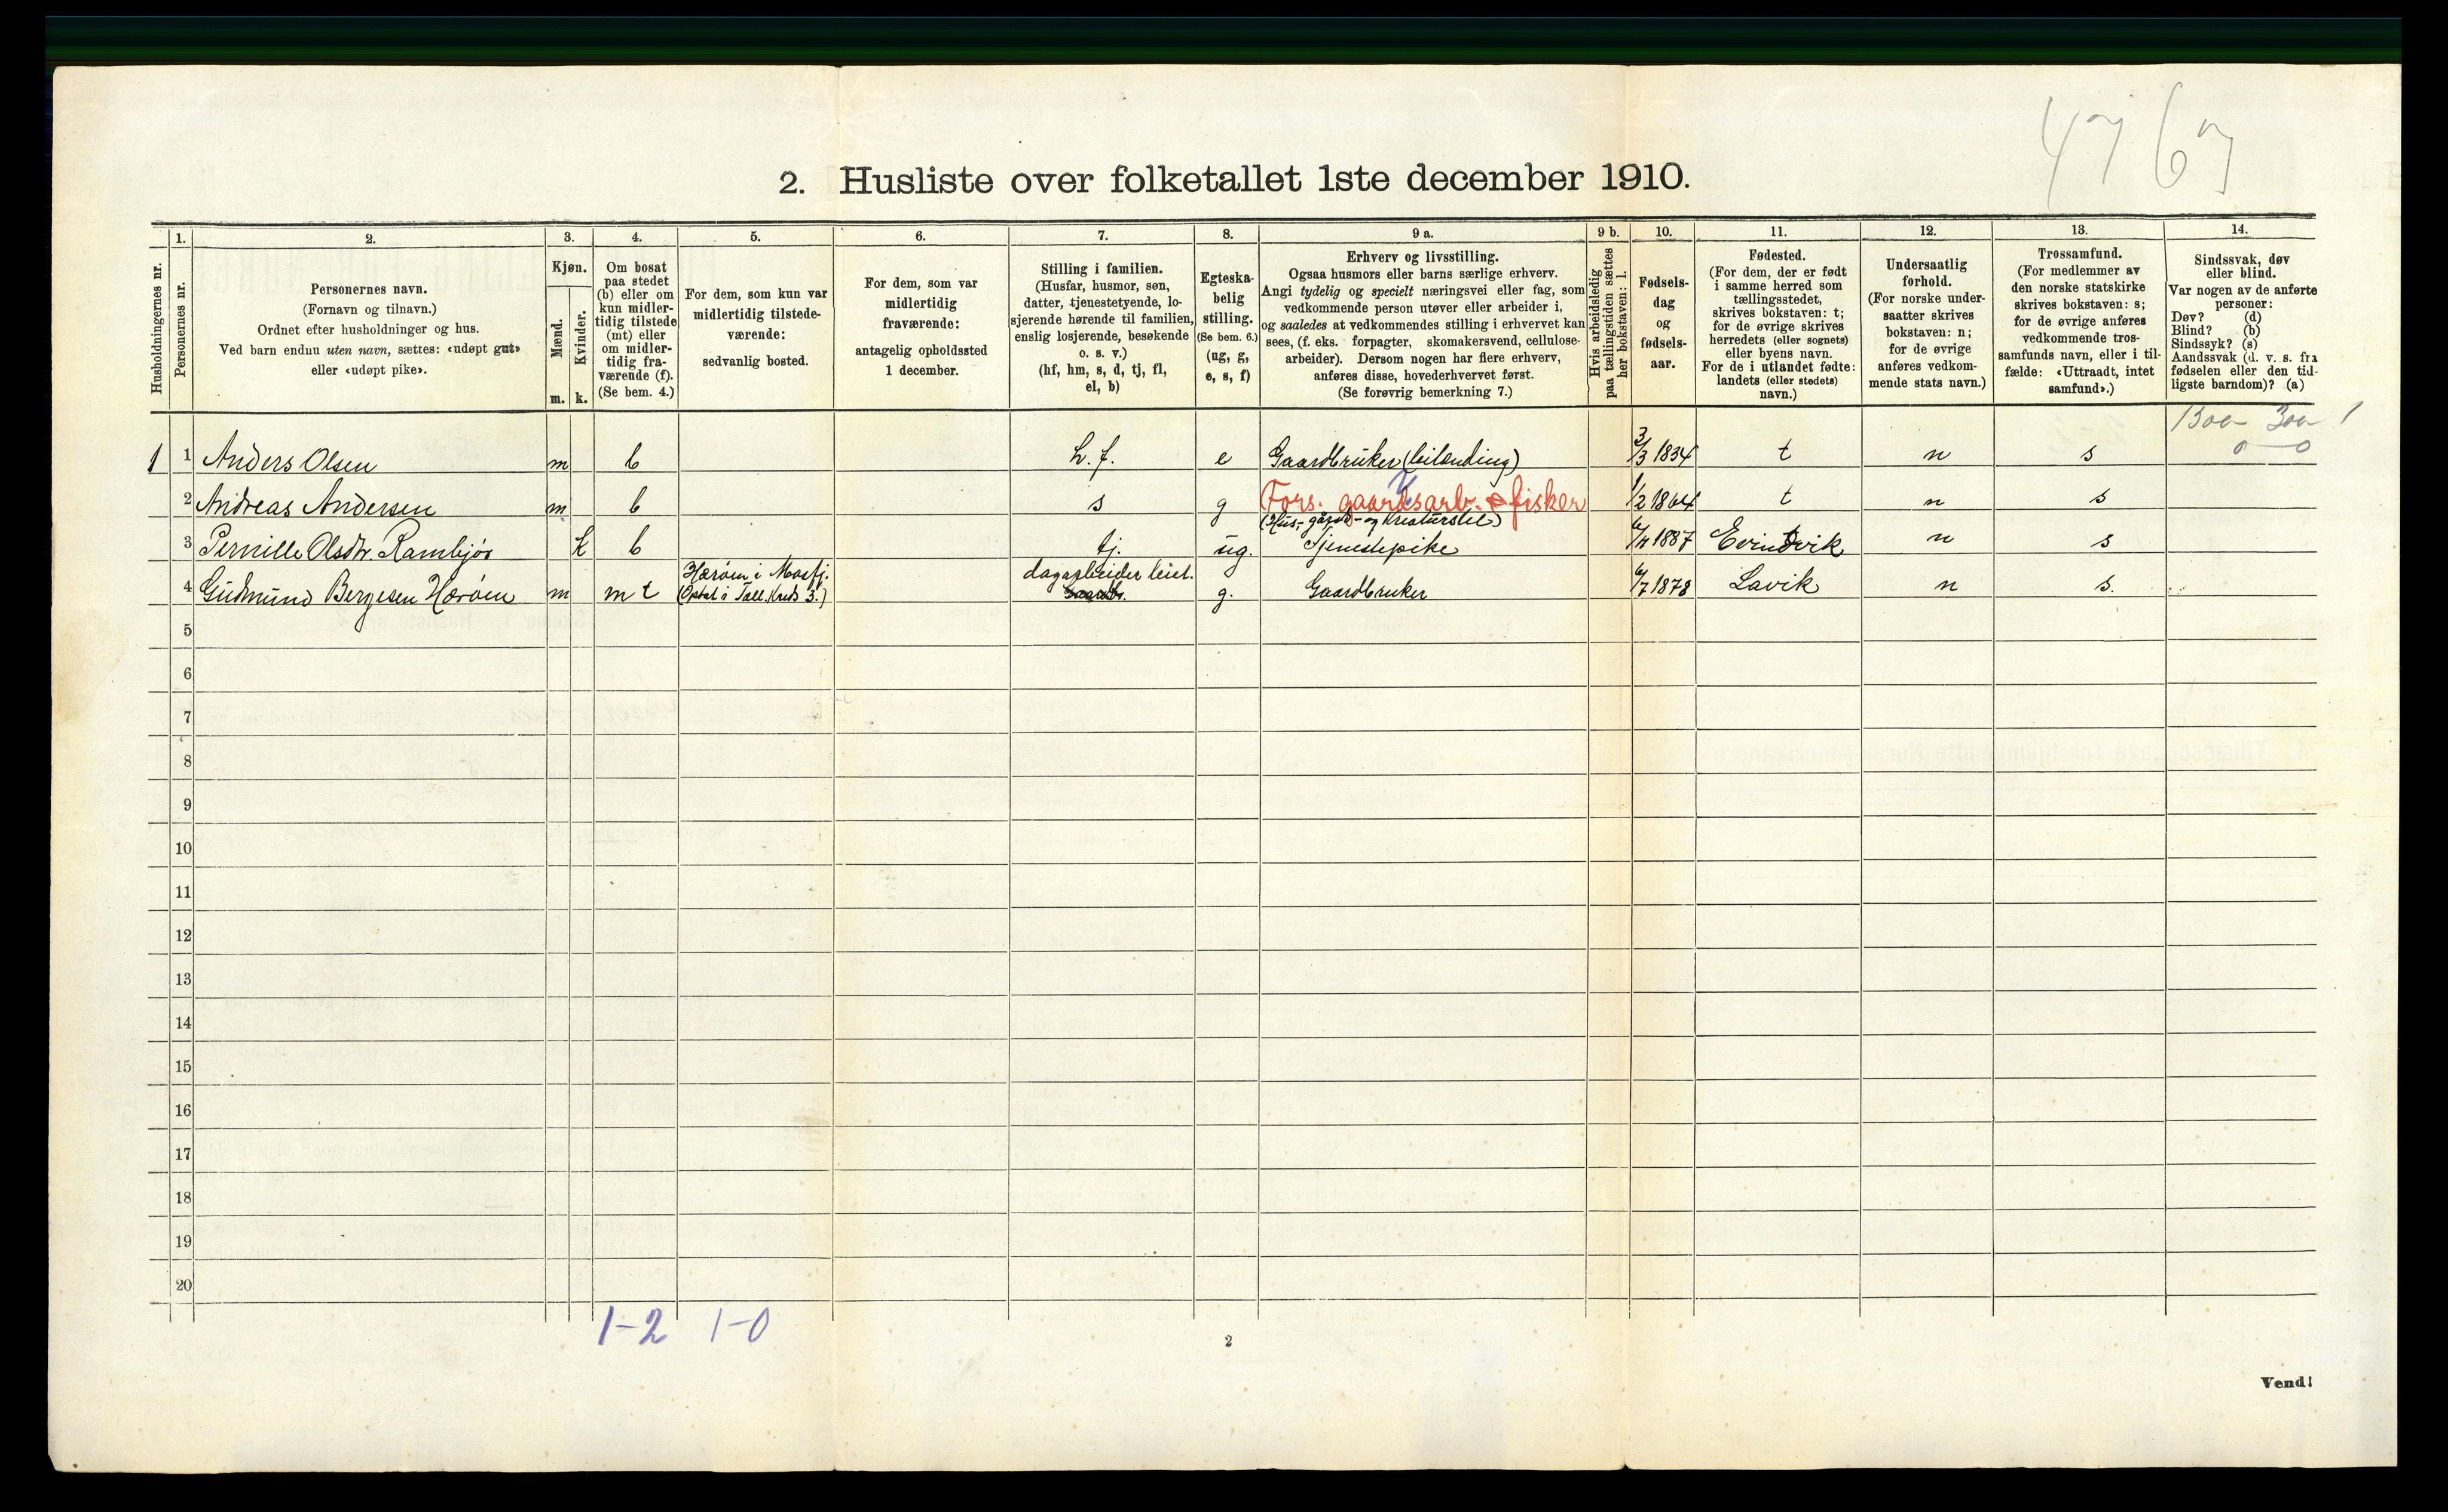 47 67
2. Husliste over folketallet 1ste december 1910.
Husholdningernes nr.
1.
Personernes nr.
2.
Personernes navn.
(Fornavn og tilnavn.)
Ordnet efter husholdninger og hus.
Ved barn endnu uten navn, sættes: «udøpt gut»
eller «udøpt pike».
3.
Kjøn.
Mænd.
Kvinder.
m. k.
4.
Om bosat
paa stedet
(b) eller om
kun midler-
tidig tilstede
(mt) eller
om midler-
tidig fra-
værende (f).
(Se bem. 4.)
5.
For dem, som kun var
midlertidig tilstede-
værende:
sedvanlig bosted.
6.
For dem, som var
midlertidig
fraværende:
antagelig opholdssted
1 december.
7.
Stilling i familien.
(Husfar, husmor, søn,
datter, tjenestetyende, lo-
sjerende hørende til familien,
enslig losjerende, besøkende
o. s. v.)
(hf, hm, s, d, tj, fl,
el, b)
8.
Egteska-
belig
stilling.
(Se bem. 6.)
(ug, g,
e, s, f)
9 a.
Erhverv og livsstilling.
Ogsaa husmors eller barns særlige erhverv.
Angi tydelig og specielt næringsvei eller fag, som
vedkommende person utøver eller arbeider i,
og saaledes at vedkommendes stilling i erhvervet kan
sees, (f. eks. forpagter, skomakersvend, cellulose-
arbeider). Dersom nogen har flere erhverv,
anføres disse, hovederhvervet først.
(Se forøvrig bemerkning 7.)
9 b.
Hvis arbeidsledig
paa tællingstiden sættes
her bokstaven: l.
10.
Fødsels-
dag
og
fødsels-
aar.
11.
Fødested.
(For dem, der er født
i samme herred som
tællingsstedet,
skrives bokstaven: t;
for de øvrige skrives
herredets (eller sognets)
eller byens navn.
For de i utlandet fødte:
landets (eller stedets)
navn.)
12.
Undersaatlig
forhold.
(For norske under-
saatter skrives
bokstaven: n;
for de øvrige
anføres vedkom-
mende stats navn.)
13.
Trossamfund.
(For medlemmer av
den norske statskirke
skrives bokstaven: s;
for de øvrige anføres
vedkommende tros-
samfunds navn, eller i til-
fælde: «Uttraadt, intet
samfund».)
14.
Sindssvak, døv
eller blind.
Var nogen av de anførte
personer:
Døv? (d)
Blind? (b)
Sindssyk? (s)
Aandssvak (d. v. s. fra
fødselen eller den tid-
ligste barndom)? (a)
1300- 300- 1
0 - 0
1 1 Anders Olsen m b h.f. e Gaardbruker (leilending) 3/3 1834 t n s
2 Andreas Andersen m b s g Fors. gaardsarb. & fisker 1/2 1864 t n s
(Hus-, gårds- og Kreaturstel)
3 Pernille Olsdtr. Rambjør k b tj. ug. Tjenestepike 1887 Evindvik n s
Hærøen i Masfj. dagarbeider leiet.
4 Gudmund Bergesen Hærøen m mt (Optal i Tæll. Kreds 3.) Gaardb. g. Gaardbruker 6/7 1878 Lavik n s.
5
6
7
8
9
10
11
12
13
14
15
16
17
18
19
20
1-2 1-0
2
Vend!